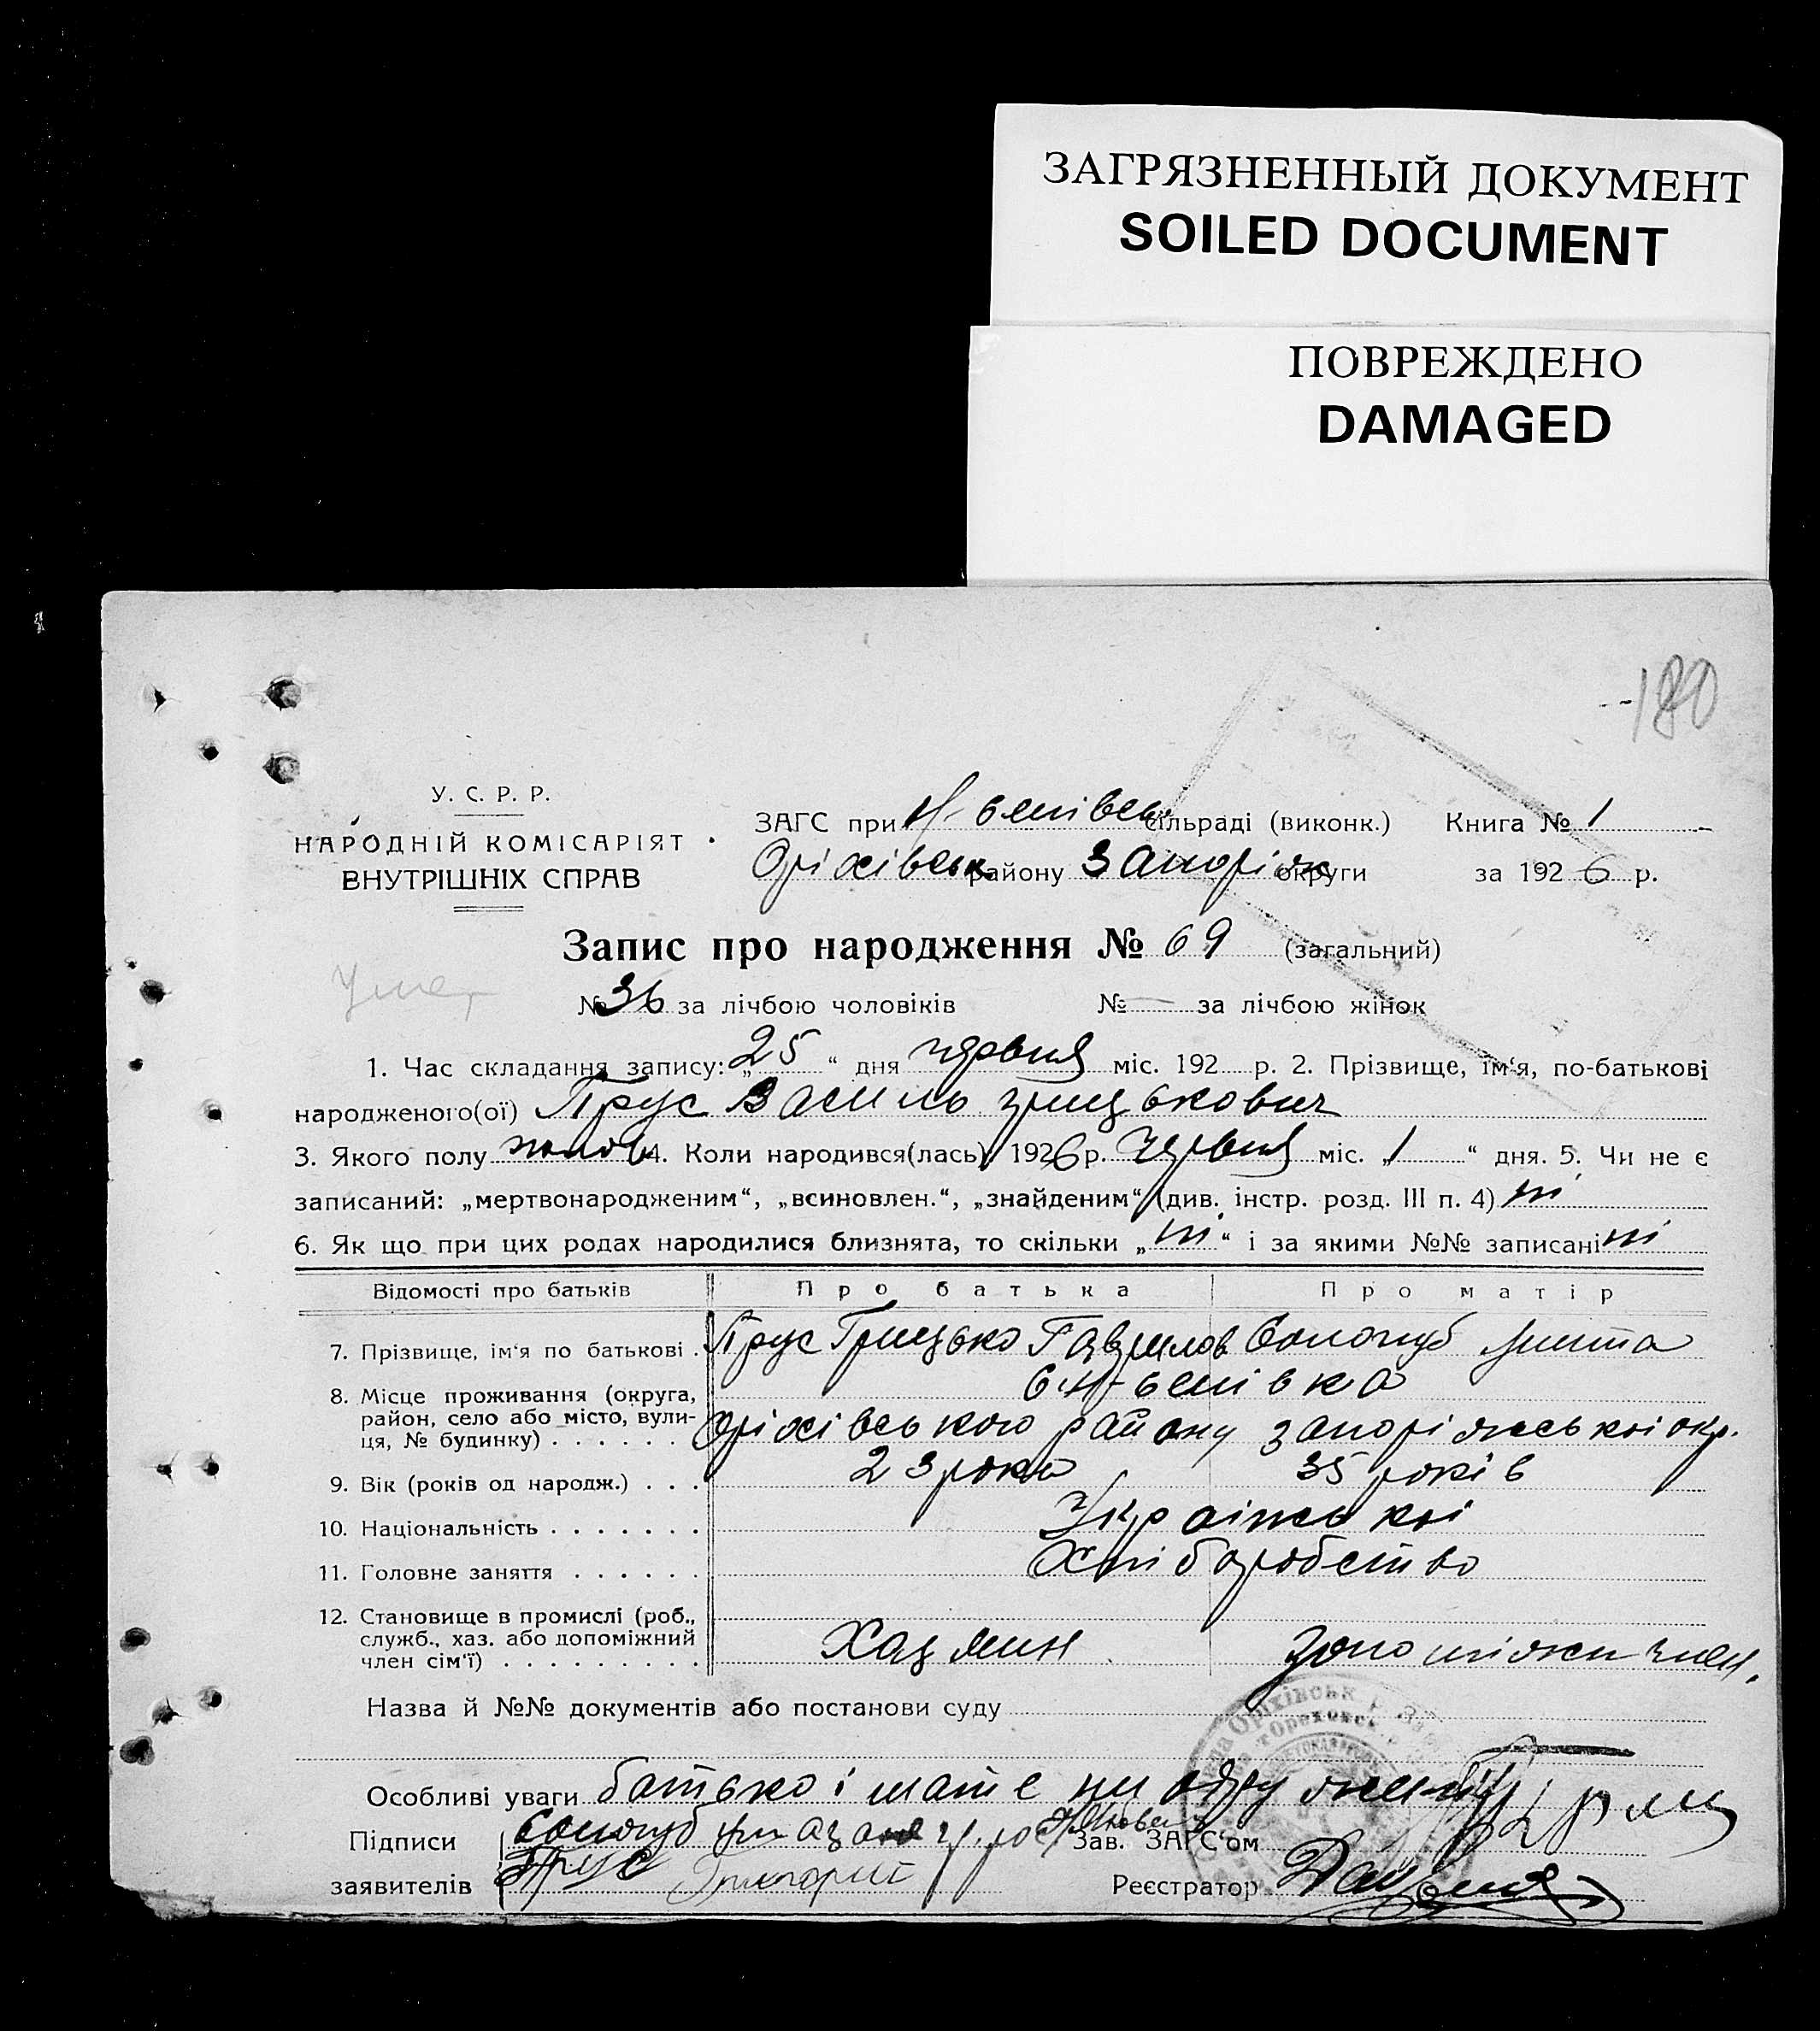 ЗАГРЯЗНЕННЫЙ ДОКУМЕНТ
SOILED DOCUMENT
ПОВРЕЖДЕНО
DAMAGED
180
У. С. Р. Р.
НАРОДНІЙ КОМІСАРІЯТ
ВНУТРІШНІХ СПРАВ
ЗАГС при сільраді (виконк.) Книга № 1
Оріхівськ району Запоріж округи за 1926 р.
Запис про народження № 69 (загальний)
№ 36 за лічбою чоловіків № — за лічбою жінок
1. Час складання запису: „25“ дня червня міс. 192 р. 2. Прізвище, ім'я, по-батькові
народженого(ої) Прус Василь Грицькович
3. Якого полу чолов 4. Коли народився(лась) 1926 р. червня міс. „1“ дня. 5. Чи не є
записаний: „мертвонародженим“, „всиновлен.“, „знайденим“ (див. інстр. розд. III п. 4) ні
6. Як що при цих родах народилися близнята, то скільки „ні“ і за якими №№ записані ні
Відомості про батьків Про батька Про матір
7. Прізвище, ім'я по батькові . Прус Грицько Гаврилов Сологуб
8. Місце проживання (округа,
район, село або місто, вули-
ця, № будинку) . . . . . . Оріхівського району Запоріжської окр.
9. Вік (років од народж.) . . . 23 роки 35 років
10. Національність . . . . . . . Української
11. Головне заняття . . . . . . Хліборобство
12. Становище в промислі (роб.,
служб., хаз. або допоміжний
член сім'ї) . . . . . . . . . допоміжни член.
Назва й №№ документів або постанови суду
Особливі уваги батько і мате
Підписи Сологуб Зав. ЗАГС'ом
заявителів Прус Григорий Реєстратор